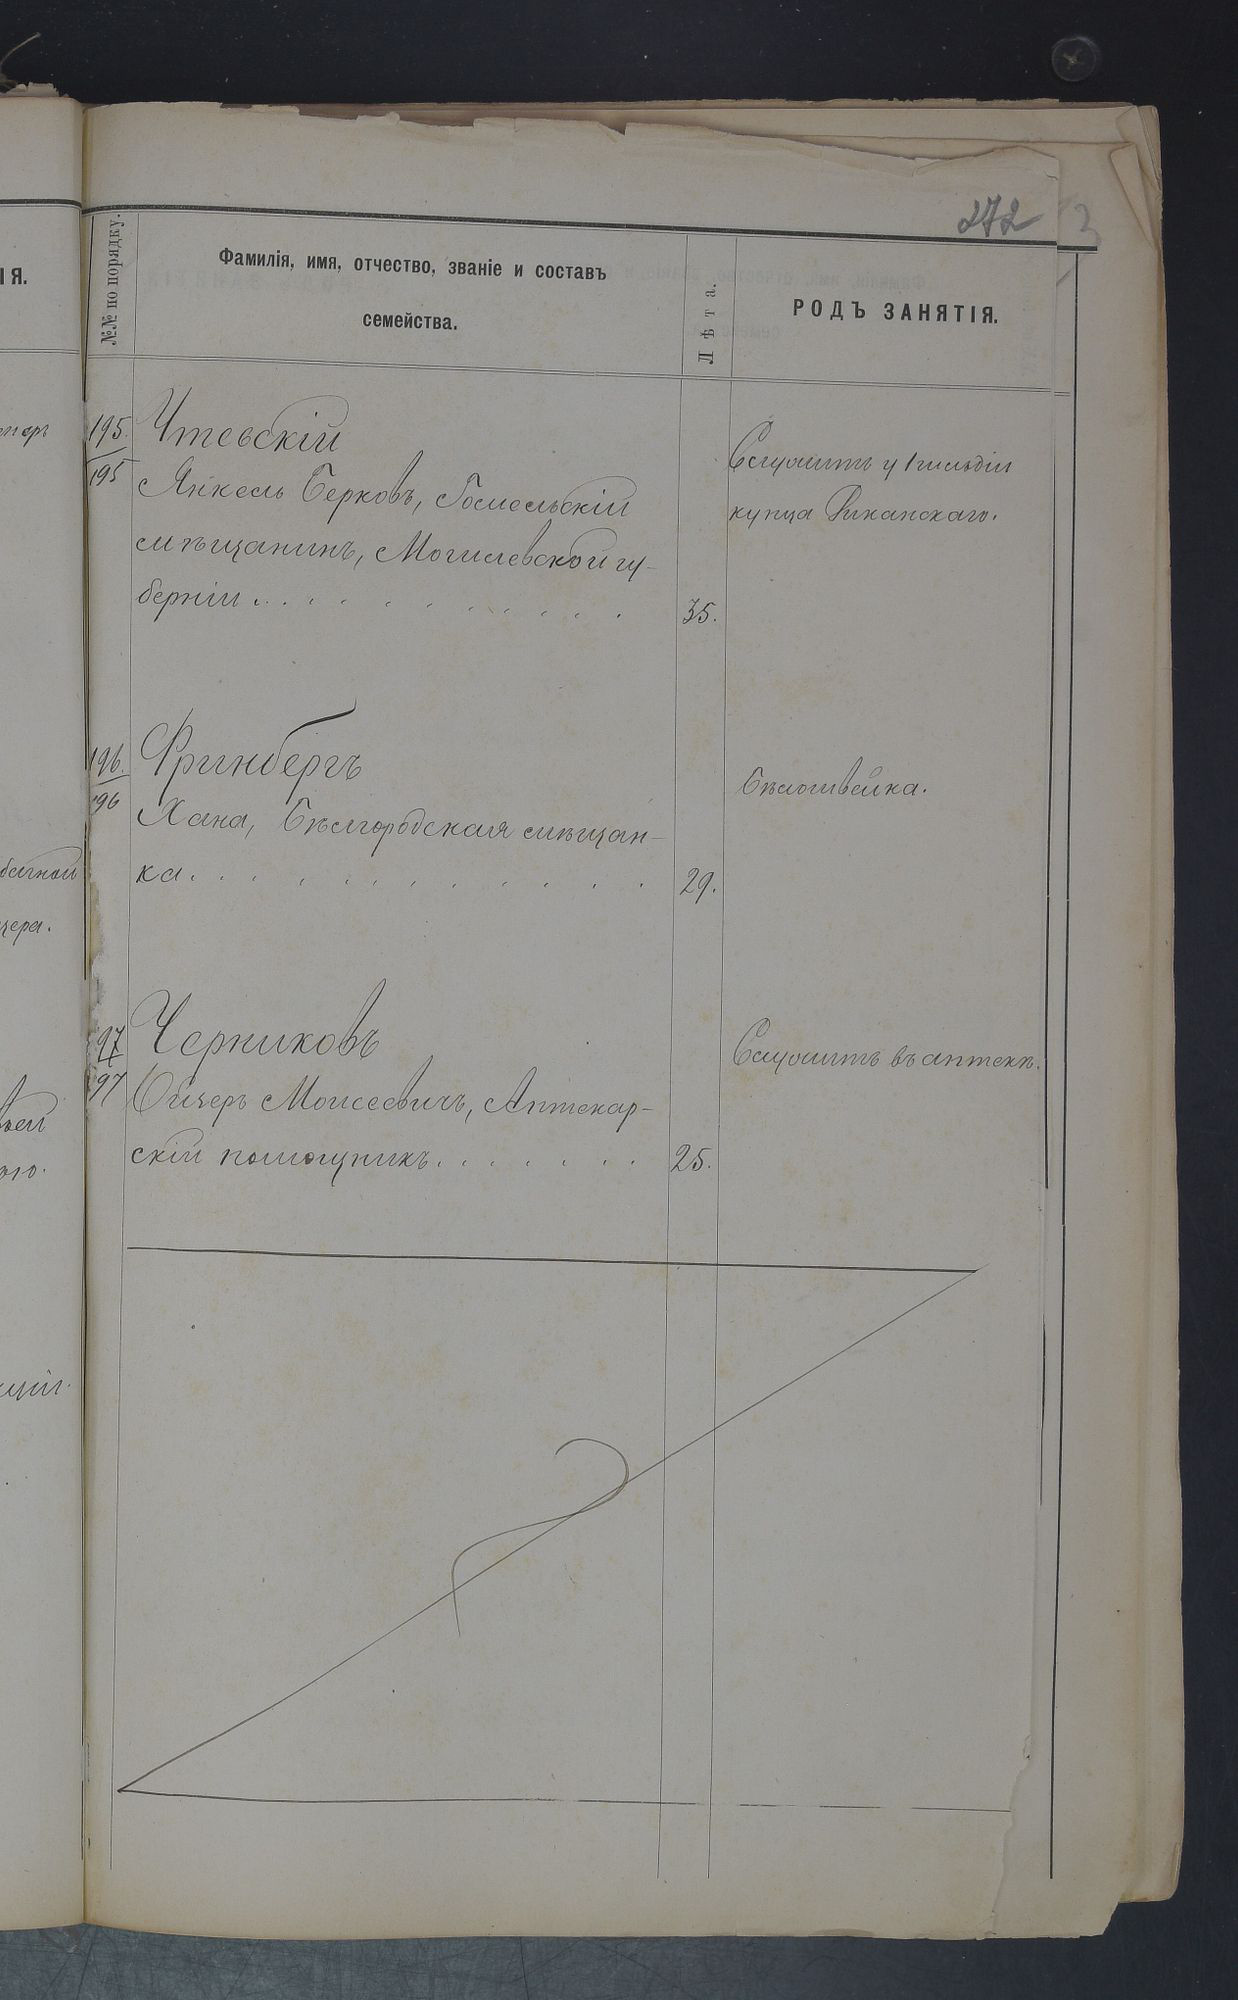 272
№№ по порядку.
Фамилія, имя, отчество, званіе и составъ
семейства.
Лѣта.
РОДЪ ЗАНЯТІЯ.
195.
195
Чтевскій
Янкель Берковъ, Гомельскій
мѣщанинъ, Могилевской гу-
берніи
35.
Служитъ у 1 гильдіи
купца
196.
196
Фринбергъ
Хана, Бѣлгородская мѣщан-
ка
29.
Бѣлошвейка.
97
97
Черниковъ
Ошеръ Моисеевичъ, Аптекар-
скій помощникъ
25.
Служитъ въ аптекѣ.